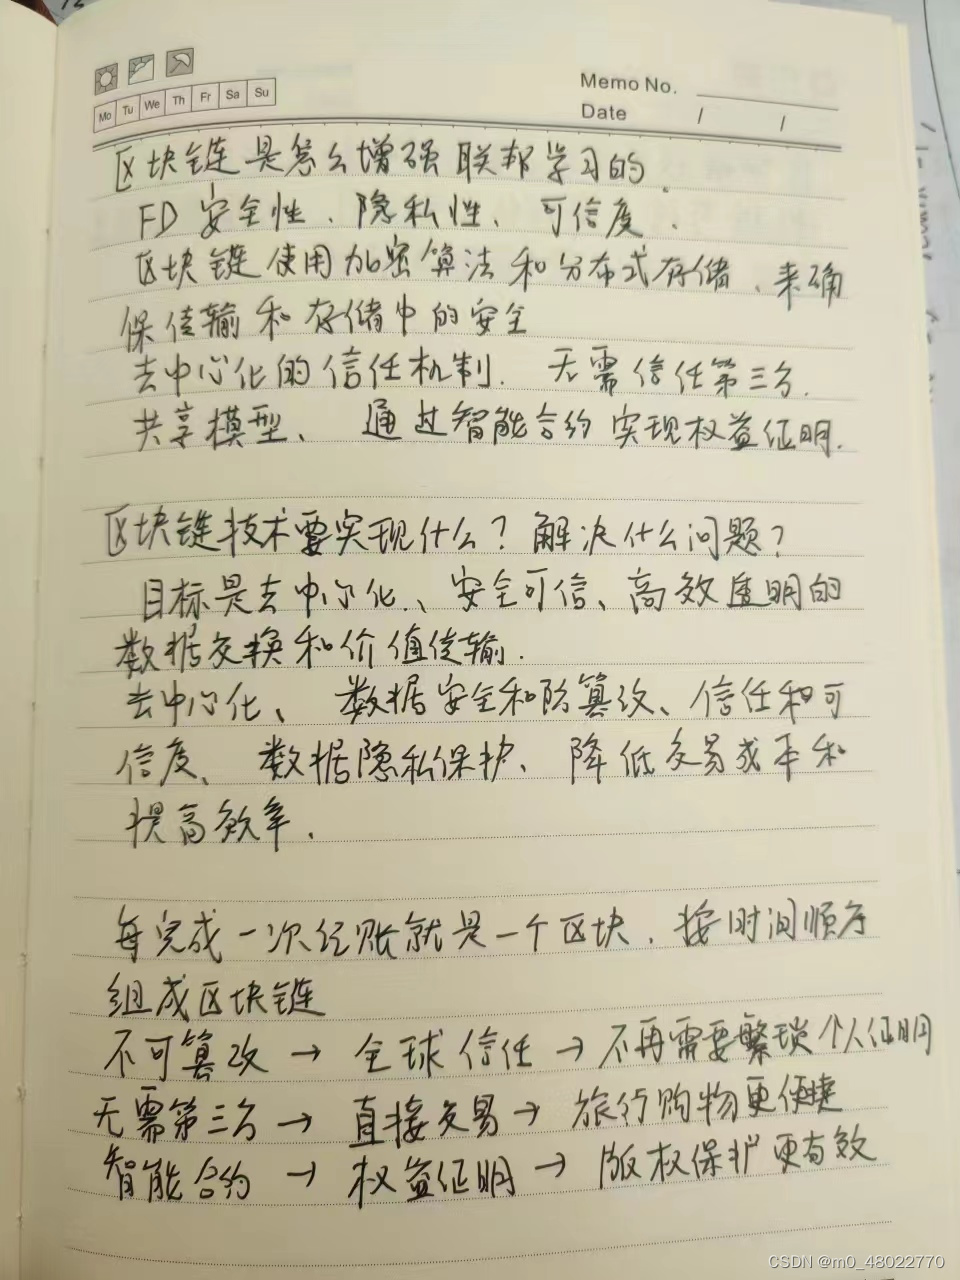 Memo No.
Mo Tu We Th Fr Sa Su
Date / /
区块链是怎么增强联邦学习的.
FD 安全性、隐私性、可信度.
区块链使用加密算法和分布式存储、来确
保传输和存储中的安全
去中心化的信任机制. 无需信任第三方.
共享模型、 通过智能合约实现权益证明.
区块链技术要实现什么？解决什么问题？
目标是去中心化、安全可信、高效透明的
数据交换和价值传输.
去中心化、 数据安全和防篡改、信任和可
信度、 数据隐私保护、 降低交易成本和
提高效率.
每完成一次记账就是一个区块. 按时间顺序
组成区块链
不可篡改 → 全球信任 → 不再需要繁琐个人证明
无需第三方 → 直接交易 → 旅行购物更便捷
智能合约 → 权益证明 → 版权保护更有效
CSDN @m0_48022770